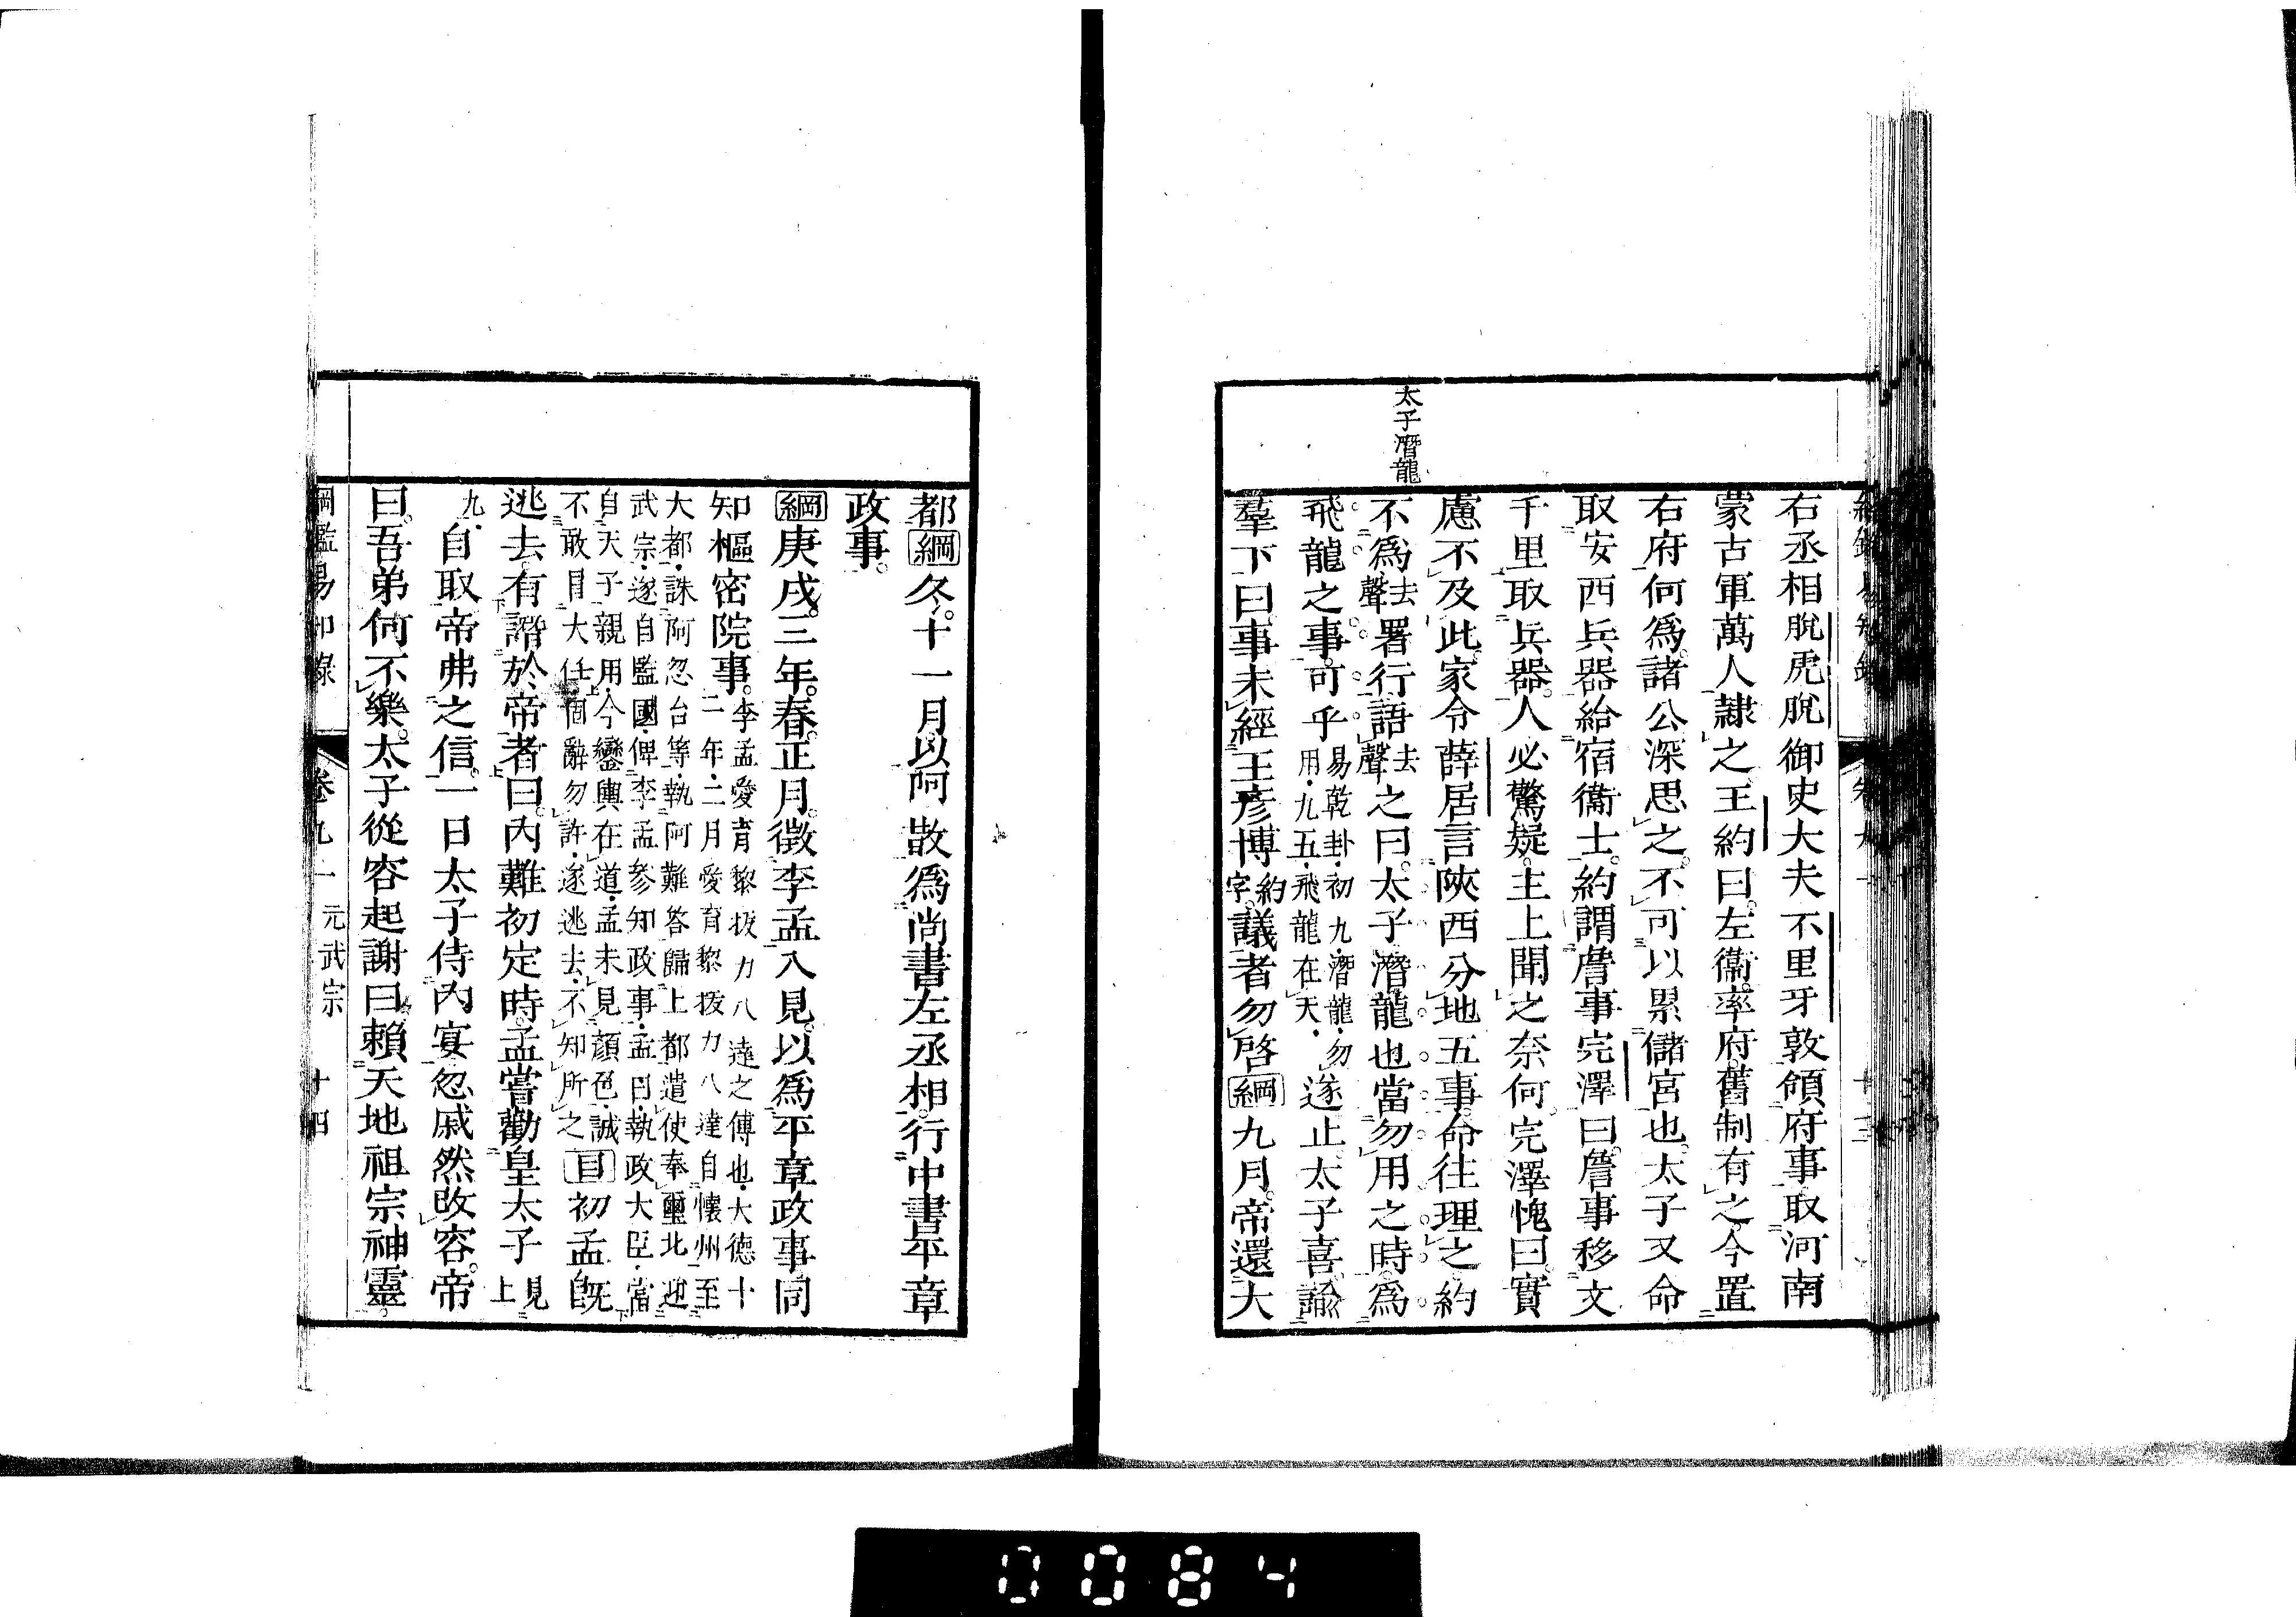 太子潛龍
右丞相脫虎脫御史大夫不里牙敦領府事取河南
蒙古軍萬人隷之王約曰左衞率府舊制有之今置
右府何爲諸公深思之不可以累儲宮也太子又命
取安西兵器給宿衞士約謂詹事完澤曰詹事移文
千里取兵器人必驚疑主上聞之奈何完澤愧曰實
慮不及此家令薛居言陝西分地五事命往理之約
不爲去聲署行語去聲之曰太子潛龍也當勿用之時爲
飛龍之事可乎易乾卦初九潛龍勿用九五飛龍在天遂止太子喜諭
羣下曰事未經王彦博約字議者勿啓綱九月帝還大
都綱冬十一月以阿散爲尚書左丞相行中書平章
政事
綱庚戌三年春正月徵李孟入見以爲平章政事同
知樞密院事李孟愛育黎拔力八達之傅也大德十二年二月愛育黎拔力八達自懷州至
大都誅阿忽台等執阿難答歸上都遣使奉璽北迎武宗遂自監國俾李孟參知政事孟曰執政大臣當
自天子親用今鑾輿在道孟未見顏色誠不敢冒大任固辭勿許遂逃去不知所之目初孟旣自
逃去有譖於帝者曰內難初定時孟嘗勸皇太子見上
九自取帝弗之信一日太子侍內宴忽戚然改容帝
曰吾弟何不樂太子從容起謝曰賴天地祖宗神靈
綱鑑易知錄 卷九一 元武宗 十四
0084